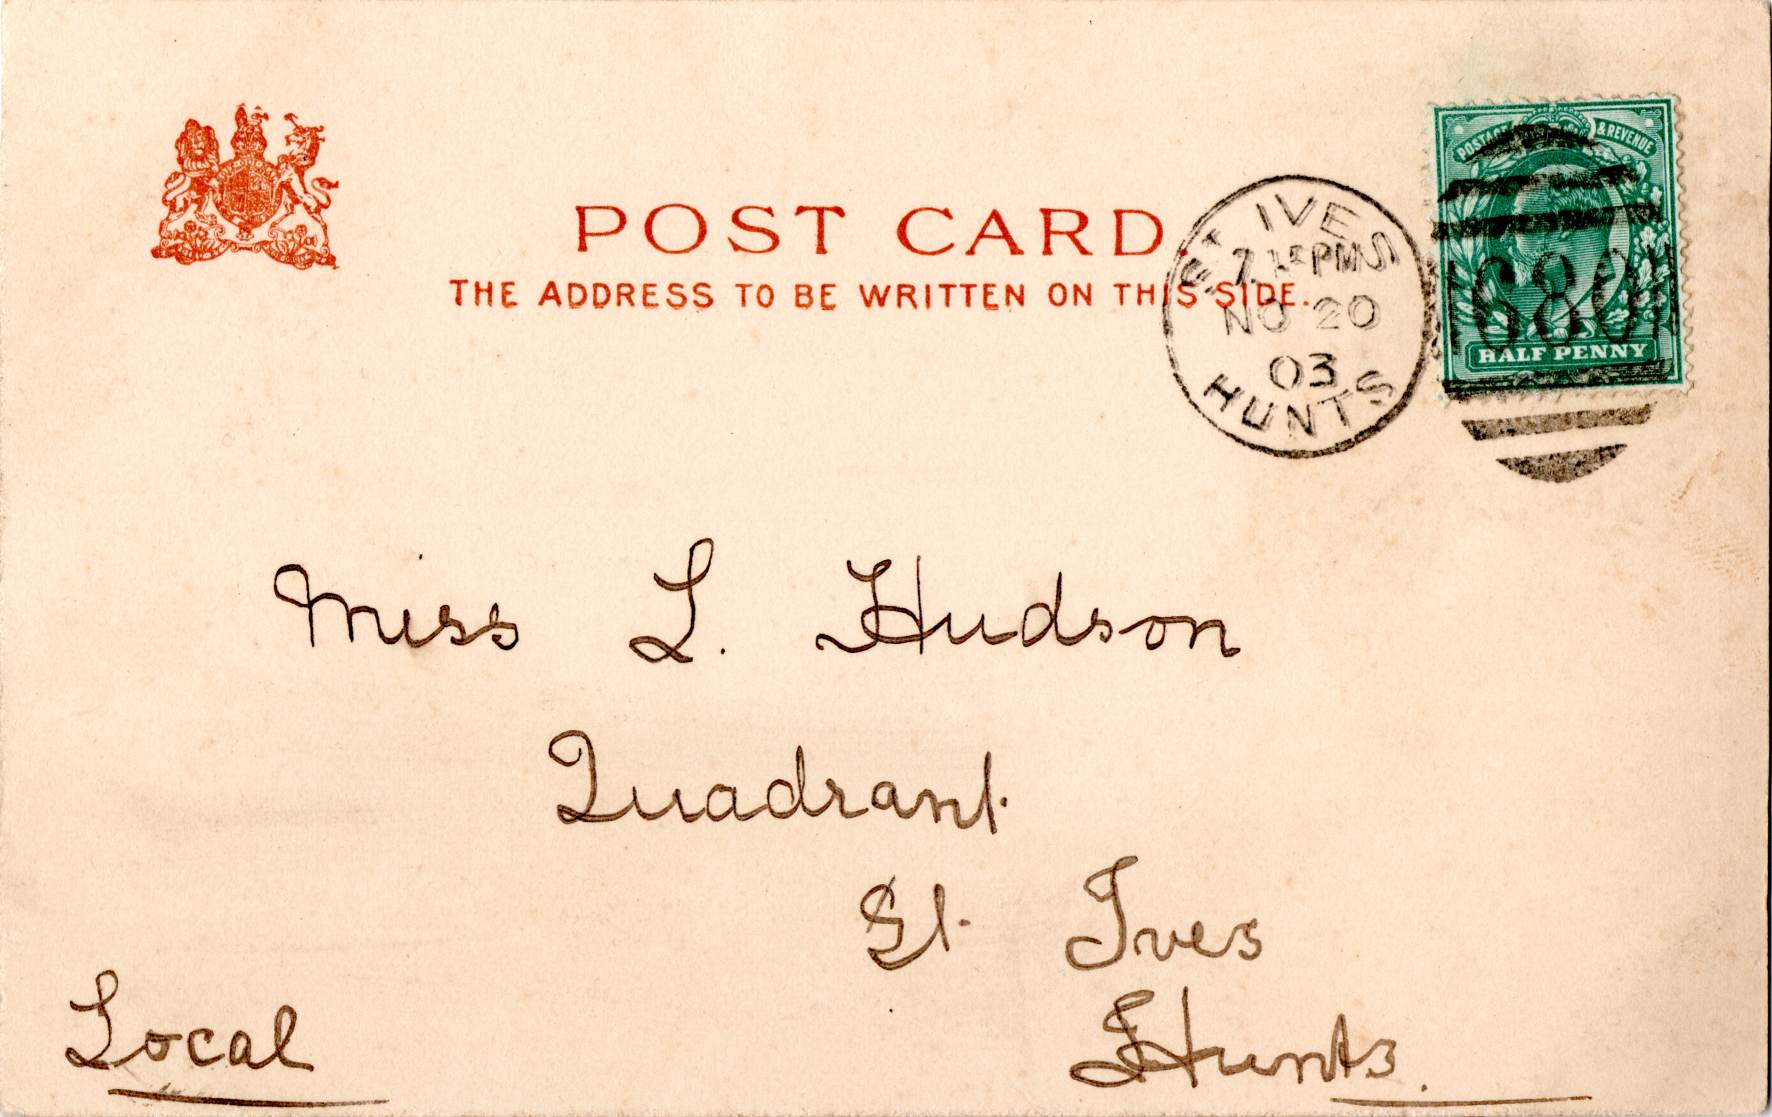 POST CARD.
THE ADDRESS TO BE WRITTEN ON THIS SIDE.
POSTAGE & REVENUE
680
HALF PENNY
ST IVES
PM
NO 20
03
HUNTS
Miss L. Hudson
Quadrant.
St. Ives
Hunts.
Local